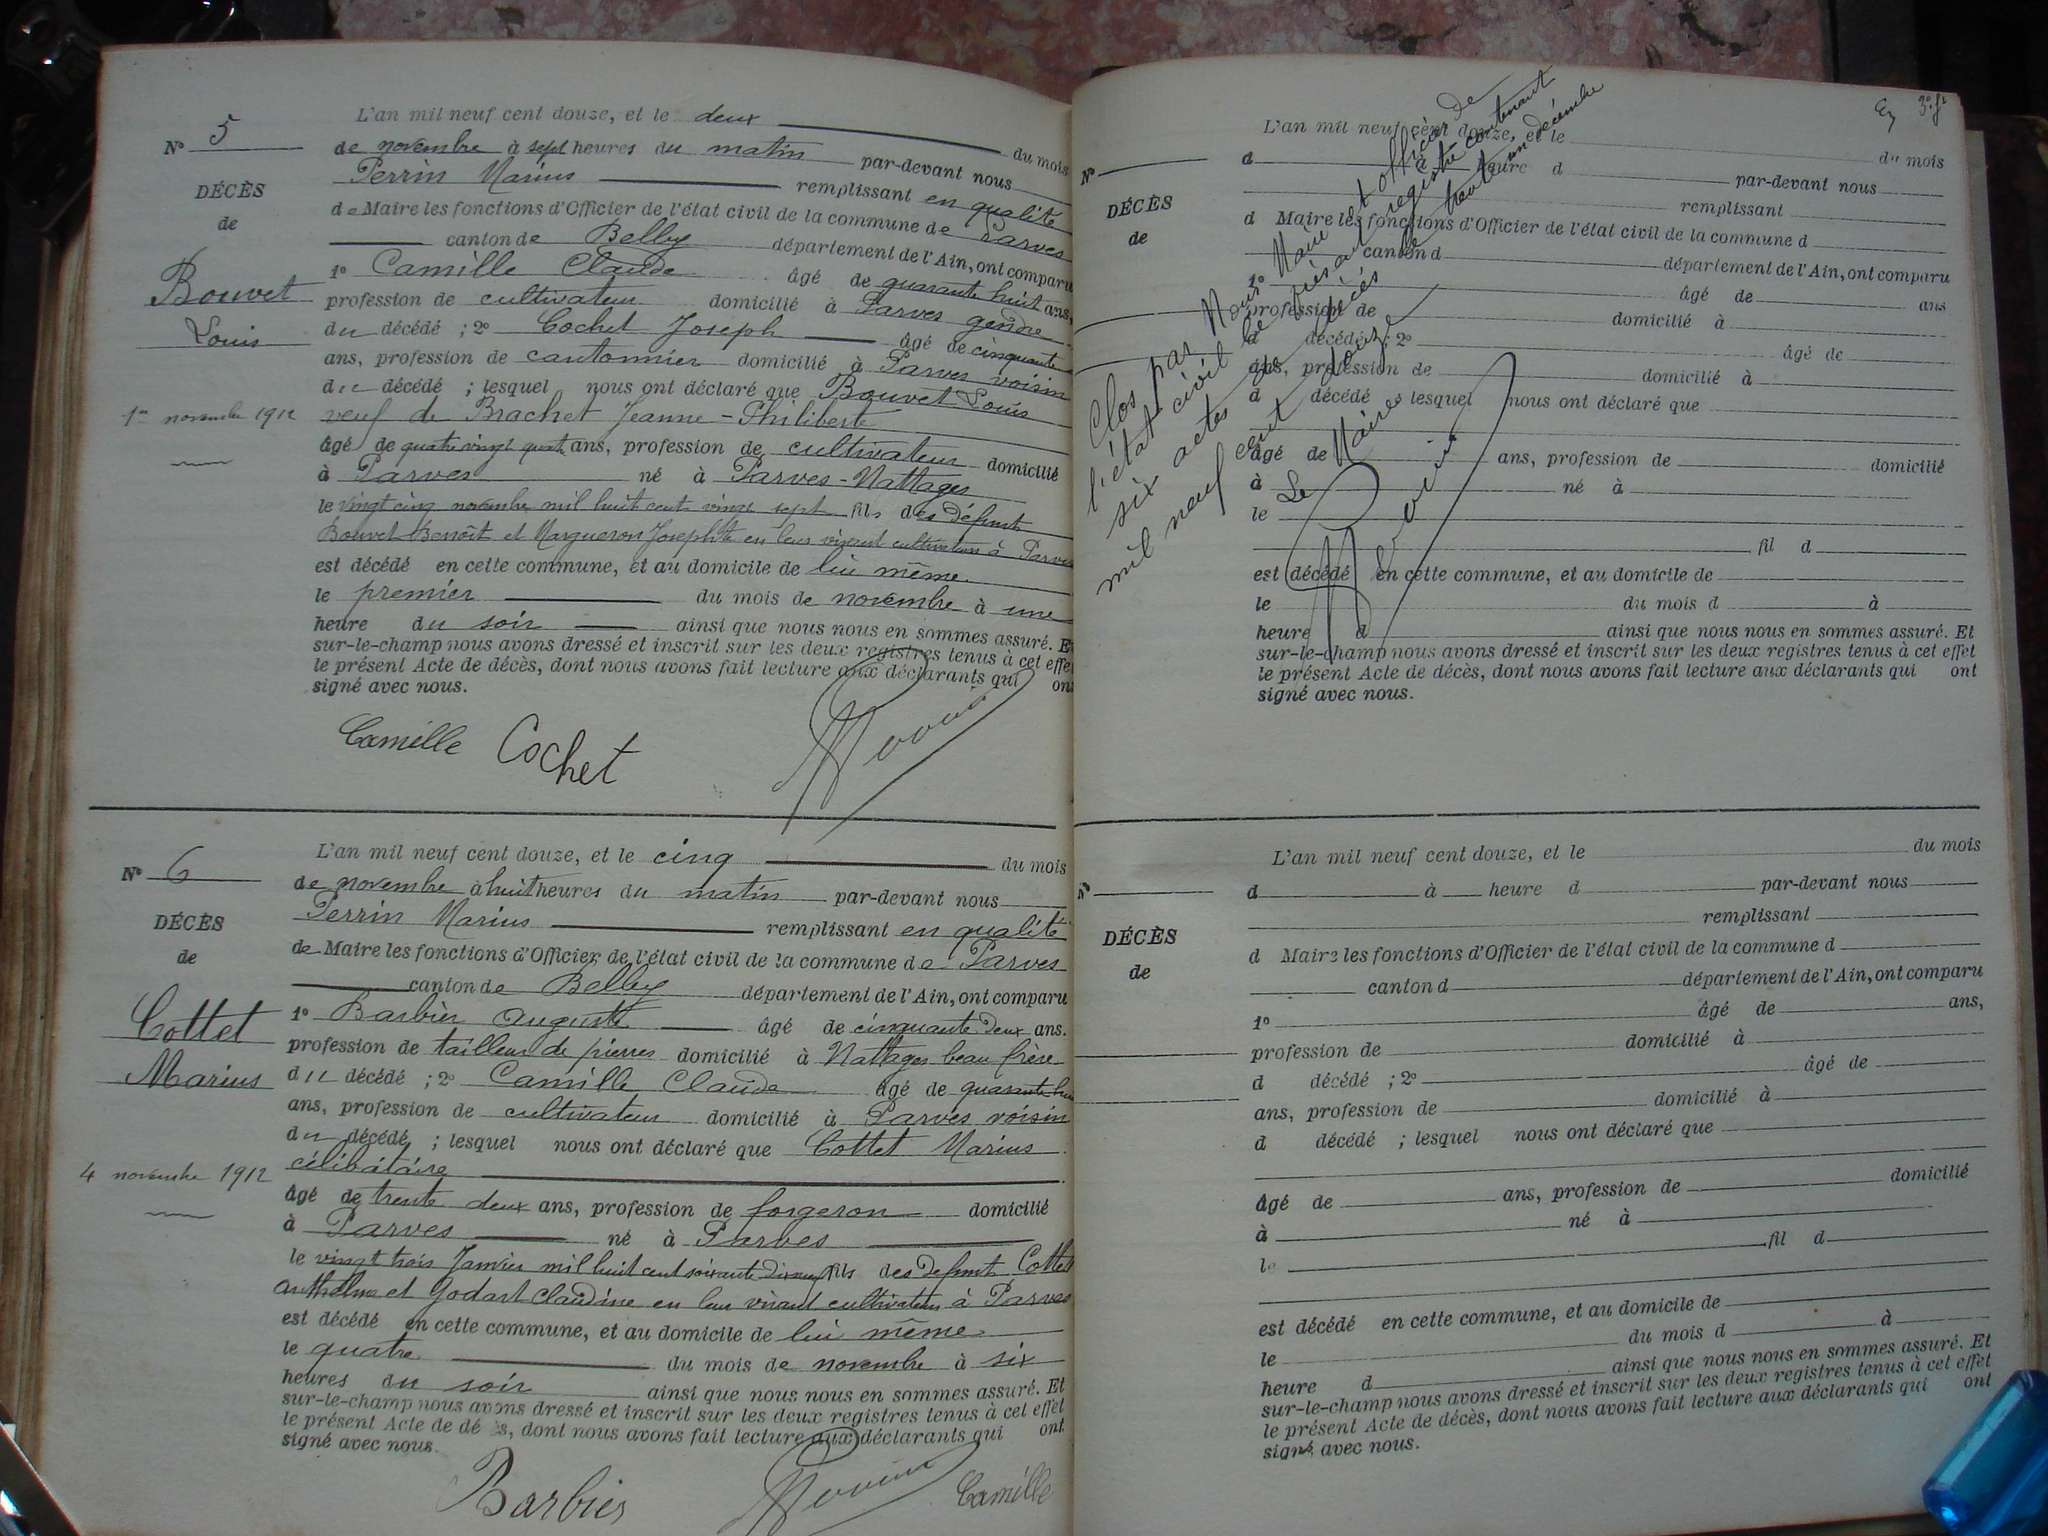 L'an mil neuf cent douze, et le deux du mois
N° 5
de novembre à sept heures du matin par-devant nous
Perrin Marius remplissant en qualité
DÉCÈS
de Maire les fonctions d'Officier de l'état civil de la commune de Parves
de
canton de Belley département de l'Ain, ont comparu
1° Camille Claude âgé de quarante huit ans,
Bouvet
profession de cultivateur domicilié à Parves gendre
Louis
du décédé ; 2° Cochet Joseph âgé de cinquante
ans, profession de cantonnier domicilié à Parves voisin
du décédé ; lesquel nous ont déclaré que Bouvet Louis
1er novembre 1912
veuf de Brachet Jeanne-Philiberte
âgé de quatre vingt quatre ans, profession de cultivateur domicilié
à Parves né à Parves-Nattages
le vingt cinq novembre mil huit cent vingt sept fils des défunts
Bouvet Benoît et Margueron Josephte en leur vivant cultivateurs à Parves
est décédé en cette commune, et au domicile de lui même
le premier du mois de novembre à une
heure du soir ainsi que nous nous en sommes assuré. Et
sur-le-champ nous avons dressé et inscrit sur les deux registres tenus à cet effet
le présent Acte de décès, dont nous avons fait lecture aux déclarants qui ont
signé avec nous.
Camille Cochet Perrin
L'an mil neuf cent douze, et le cinq du mois
N° 6
de novembre à huit heures du matin par-devant nous
Perrin Marius remplissant en qualité
DÉCÈS
de Maire les fonctions d'Officier de l'état civil de la commune de Parves
de
canton de Belley département de l'Ain, ont comparu
1° Barbier Auguste âgé de cinquante deux ans.
Cottet
profession de tailleur de pierres domicilié à Nattages beau frère
Marius
du décédé ; 2° Camille Claude âgé de quarante huit
ans, profession de cultivateur domicilié à Parves voisin
du décédé ; lesquel nous ont déclaré que Cottet Marius
4 novembre 1912
célibataire
âgé de trente deux ans, profession de forgeron domicilié
à Parves né à Parves
le vingt trois Janvier mil huit cent soixante dix neuf fils des defunts Cottet
Anthelme et Godart Claudine en leur vivant cultivateurs à Parves
est décédé en cette commune, et au domicile de lui même
le quatre du mois de novembre à six
heures du soir ainsi que nous nous en sommes assuré. Et
sur-le-champ nous avons dressé et inscrit sur les deux registres tenus à cet effet
le présent Acte de décès, dont nous avons fait lecture aux déclarants qui ont
signé avec nous.
Barbier Perrin Camille
L'an mil neuf cent douze, et le du mois
N°
d à heure d par-devant nous
remplissant
DÉCÈS
d Maire les fonctions d'Officier de l'état civil de la commune d
de
canton d département de l'Ain, ont comparu
1° âgé de ans
profession de domicilié à
d décédé ; 2° âgé de
ans, profession de domicilié à
d décédé lesquel nous ont déclaré que
âgé de ans, profession de domicilié
à né à
le
fil d
est décédé en cette commune, et au domicile de
le du mois d à
heure d ainsi que nous nous en sommes assuré. Et
sur-le-champ nous avons dressé et inscrit sur les deux registres tenus à cet effet
le présent Acte de décès, dont nous avons fait lecture aux déclarants qui ont
signé avec nous.
Clos par Nous Maire et officier de
l'état civil le présent registre contenant
six actes de décès le trente un décembre
mil neuf cent douze
Le Maire
Perrin
L'an mil neuf cent douze, et le du mois
N°
d à heure d par-devant nous
remplissant
DÉCÈS
d Maire les fonctions d'Officier de l'état civil de la commune d
de
canton d département de l'Ain, ont comparu
1° âgé de ans,
profession de domicilié à
d décédé ; 2° âgé de
ans, profession de domicilié à
d décédé ; lesquel nous ont déclaré que
âgé de ans, profession de domicilié
à né à
le fil d
est décédé en cette commune, et au domicile de
le du mois d à
heure d ainsi que nous nous en sommes assuré. Et
sur-le-champ nous avons dressé et inscrit sur les deux registres tenus à cet effet
le présent Acte de décès, dont nous avons fait lecture aux déclarants qui ont
signé avec nous.